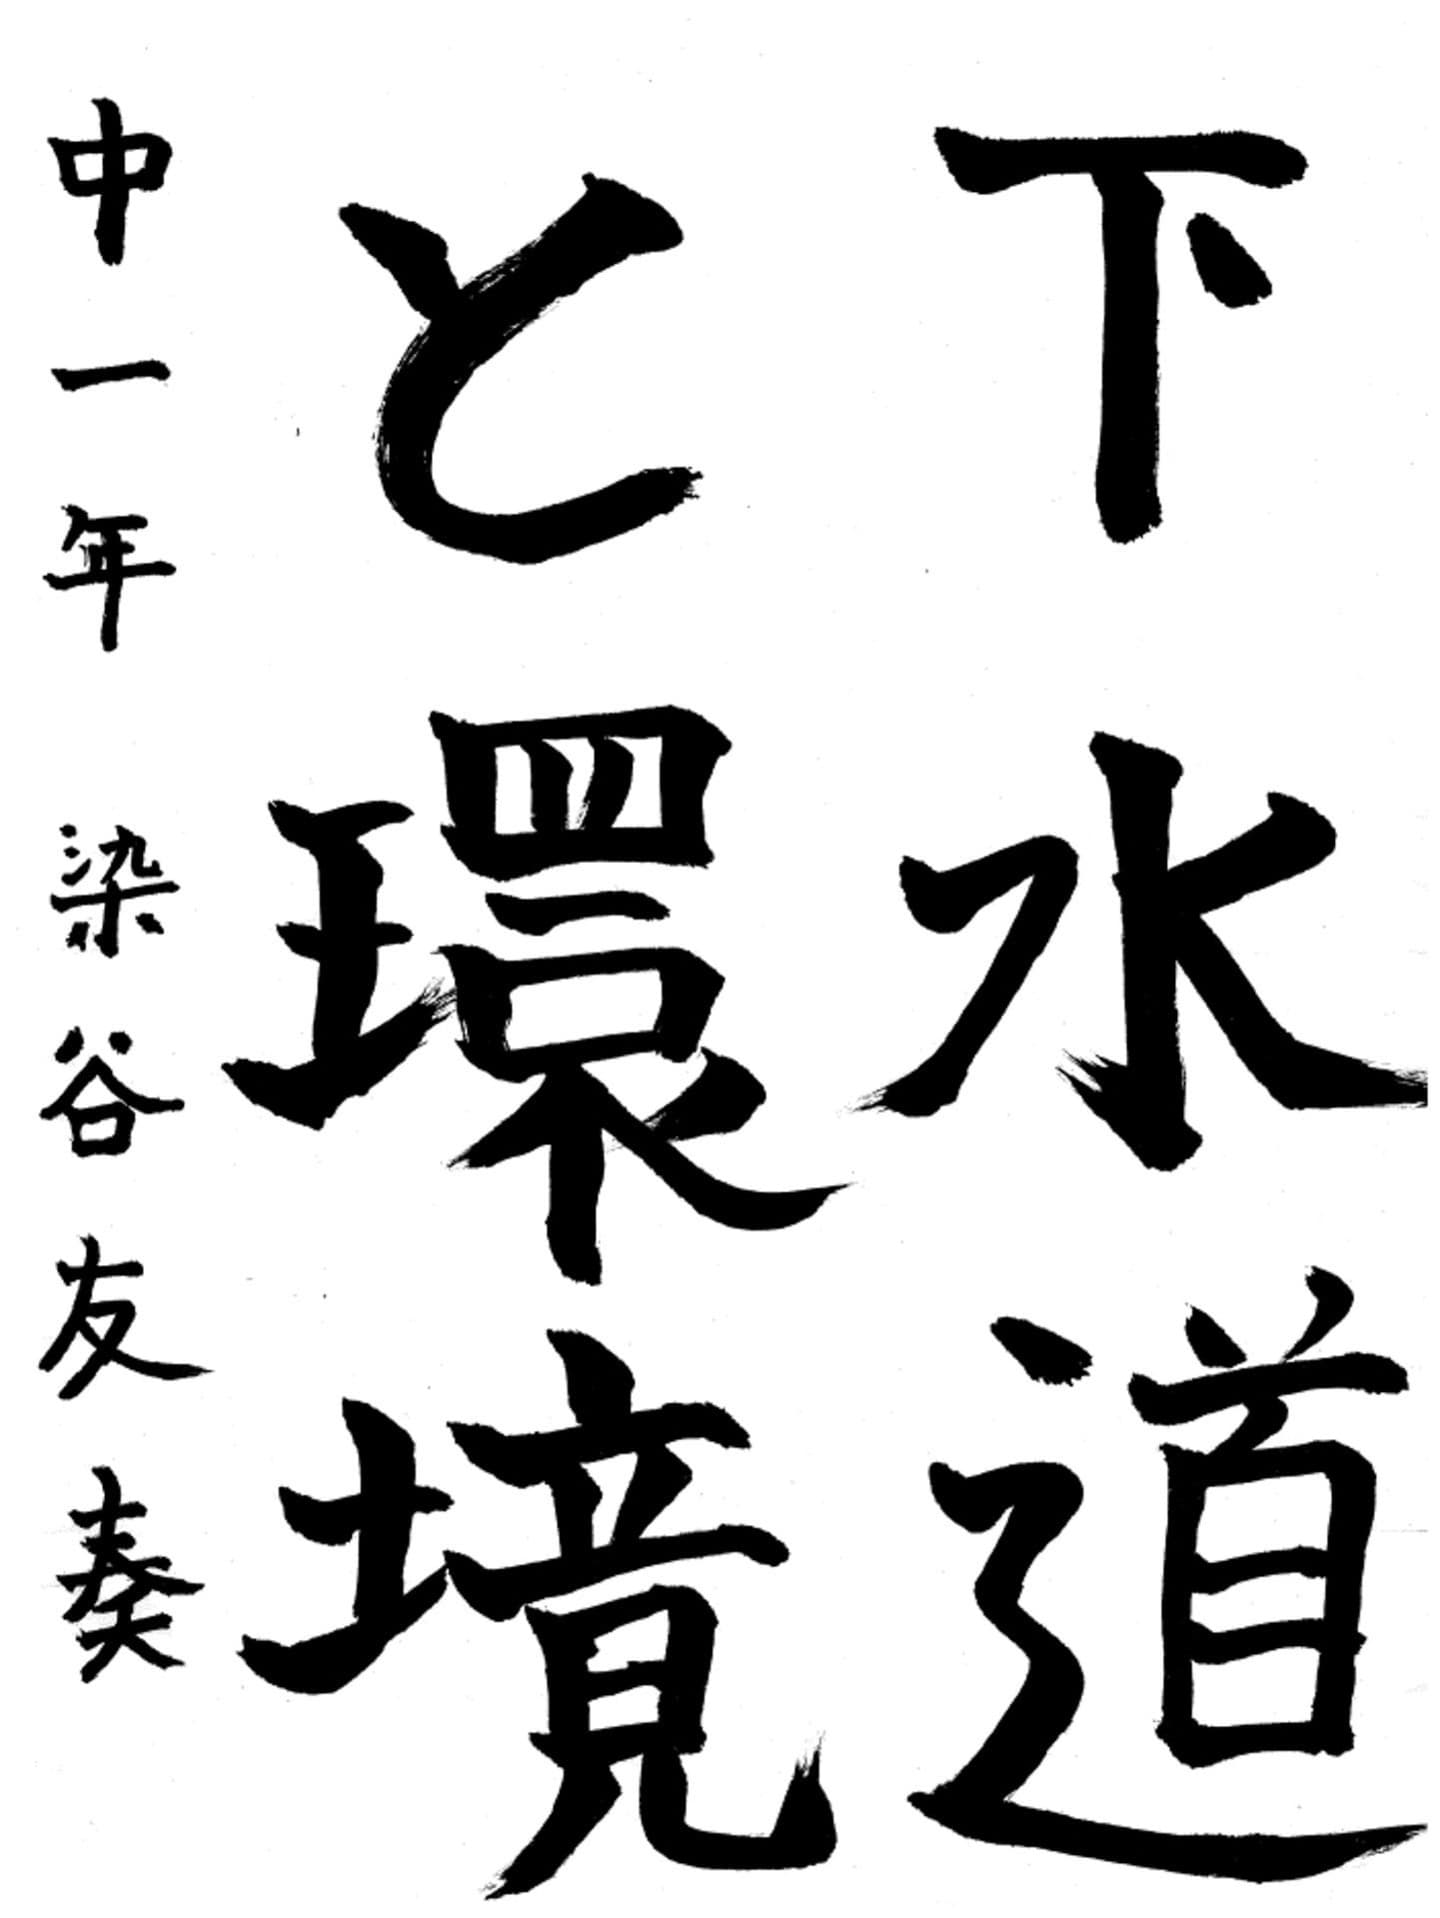 下水道
と環境
中一年 染谷友奏